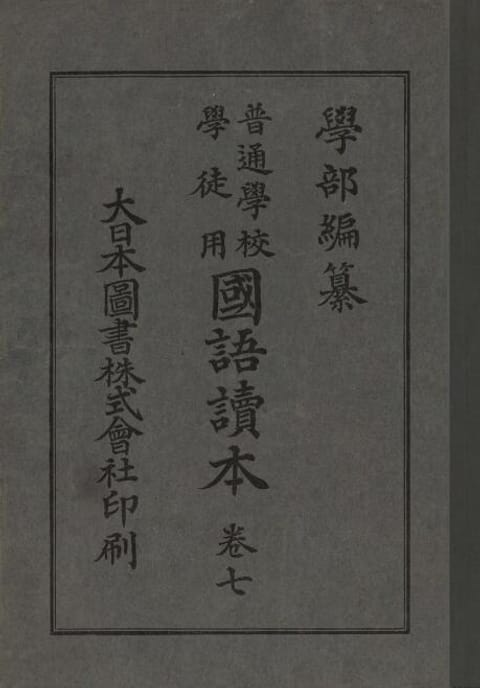 學部編纂
普通學校
學徒用
國語讀本 卷七
大日本圖書株式會社印刷